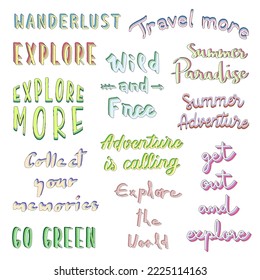 WANDERLUST
EXPLORE
EXPLORE
MORE
Collect
your
memories
GO GREEN
Wild
and
Free
Adventure
is calling
Explore
the
World
Travel more
Summer
Paradise
Summer
Adventure
get
out
and
explore
shutterstock.com · 2225114163